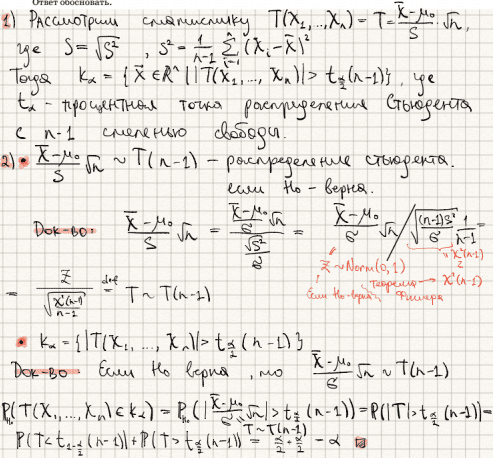 Ответ обосновать.
1) Рассмотрим статистику T(X₁,...,Xₙ) = T = (X̄-μ₀)/S √n,
где S = √S², S² = 1/(n-1) Σᵢ₌₁ⁿ (Xᵢ-X̄)²
Тогда Kα = { X⃗ ∈ ℝⁿ | |T(X₁,...,Xₙ)| > t_{α/2}(n-1)}, где
tα - процентная точка распределения Стьюдента
с n-1 степенью свободы.
2) • (X̄-μ₀)/S √n ~ T(n-1) - распределение стьюдента.
если H₀ - верна.
Док-во: (X̄-μ₀)/S √n = ((X̄-μ₀)/σ √n)/(√S²/σ) = (X̄-μ₀)/σ √n / √((n-1)S²/σ² · 1/(n-1)) =
" Z ~ Norm(0,1)
" χ²(n-1)
Если H₀-верна
теорема Фишера → χ²(n-1)
= Z/√(χ²(n-1)/(n-1)) =def T ~ T(n-1)
• Kα = {|T(X₁,...,Xₙ)| > t_{α/2}(n-1)}
Док-во: Если H₀ верна, то (X̄-μ₀)/σ √n ~ T(n-1)
P_{H₀}(T(X₁,...,Xₙ) ∈ Kα) = P_{H₀}(|(X̄-μ₀)/σ √n| > t_{α/2}(n-1)) = P(|T| > t_{α/2}(n-1)) =
" T ~ T(n-1)
P(T < t_{1-α/2}(n-1)) + P(T > t_{α/2}(n-1)) = α/2 + α/2 = α